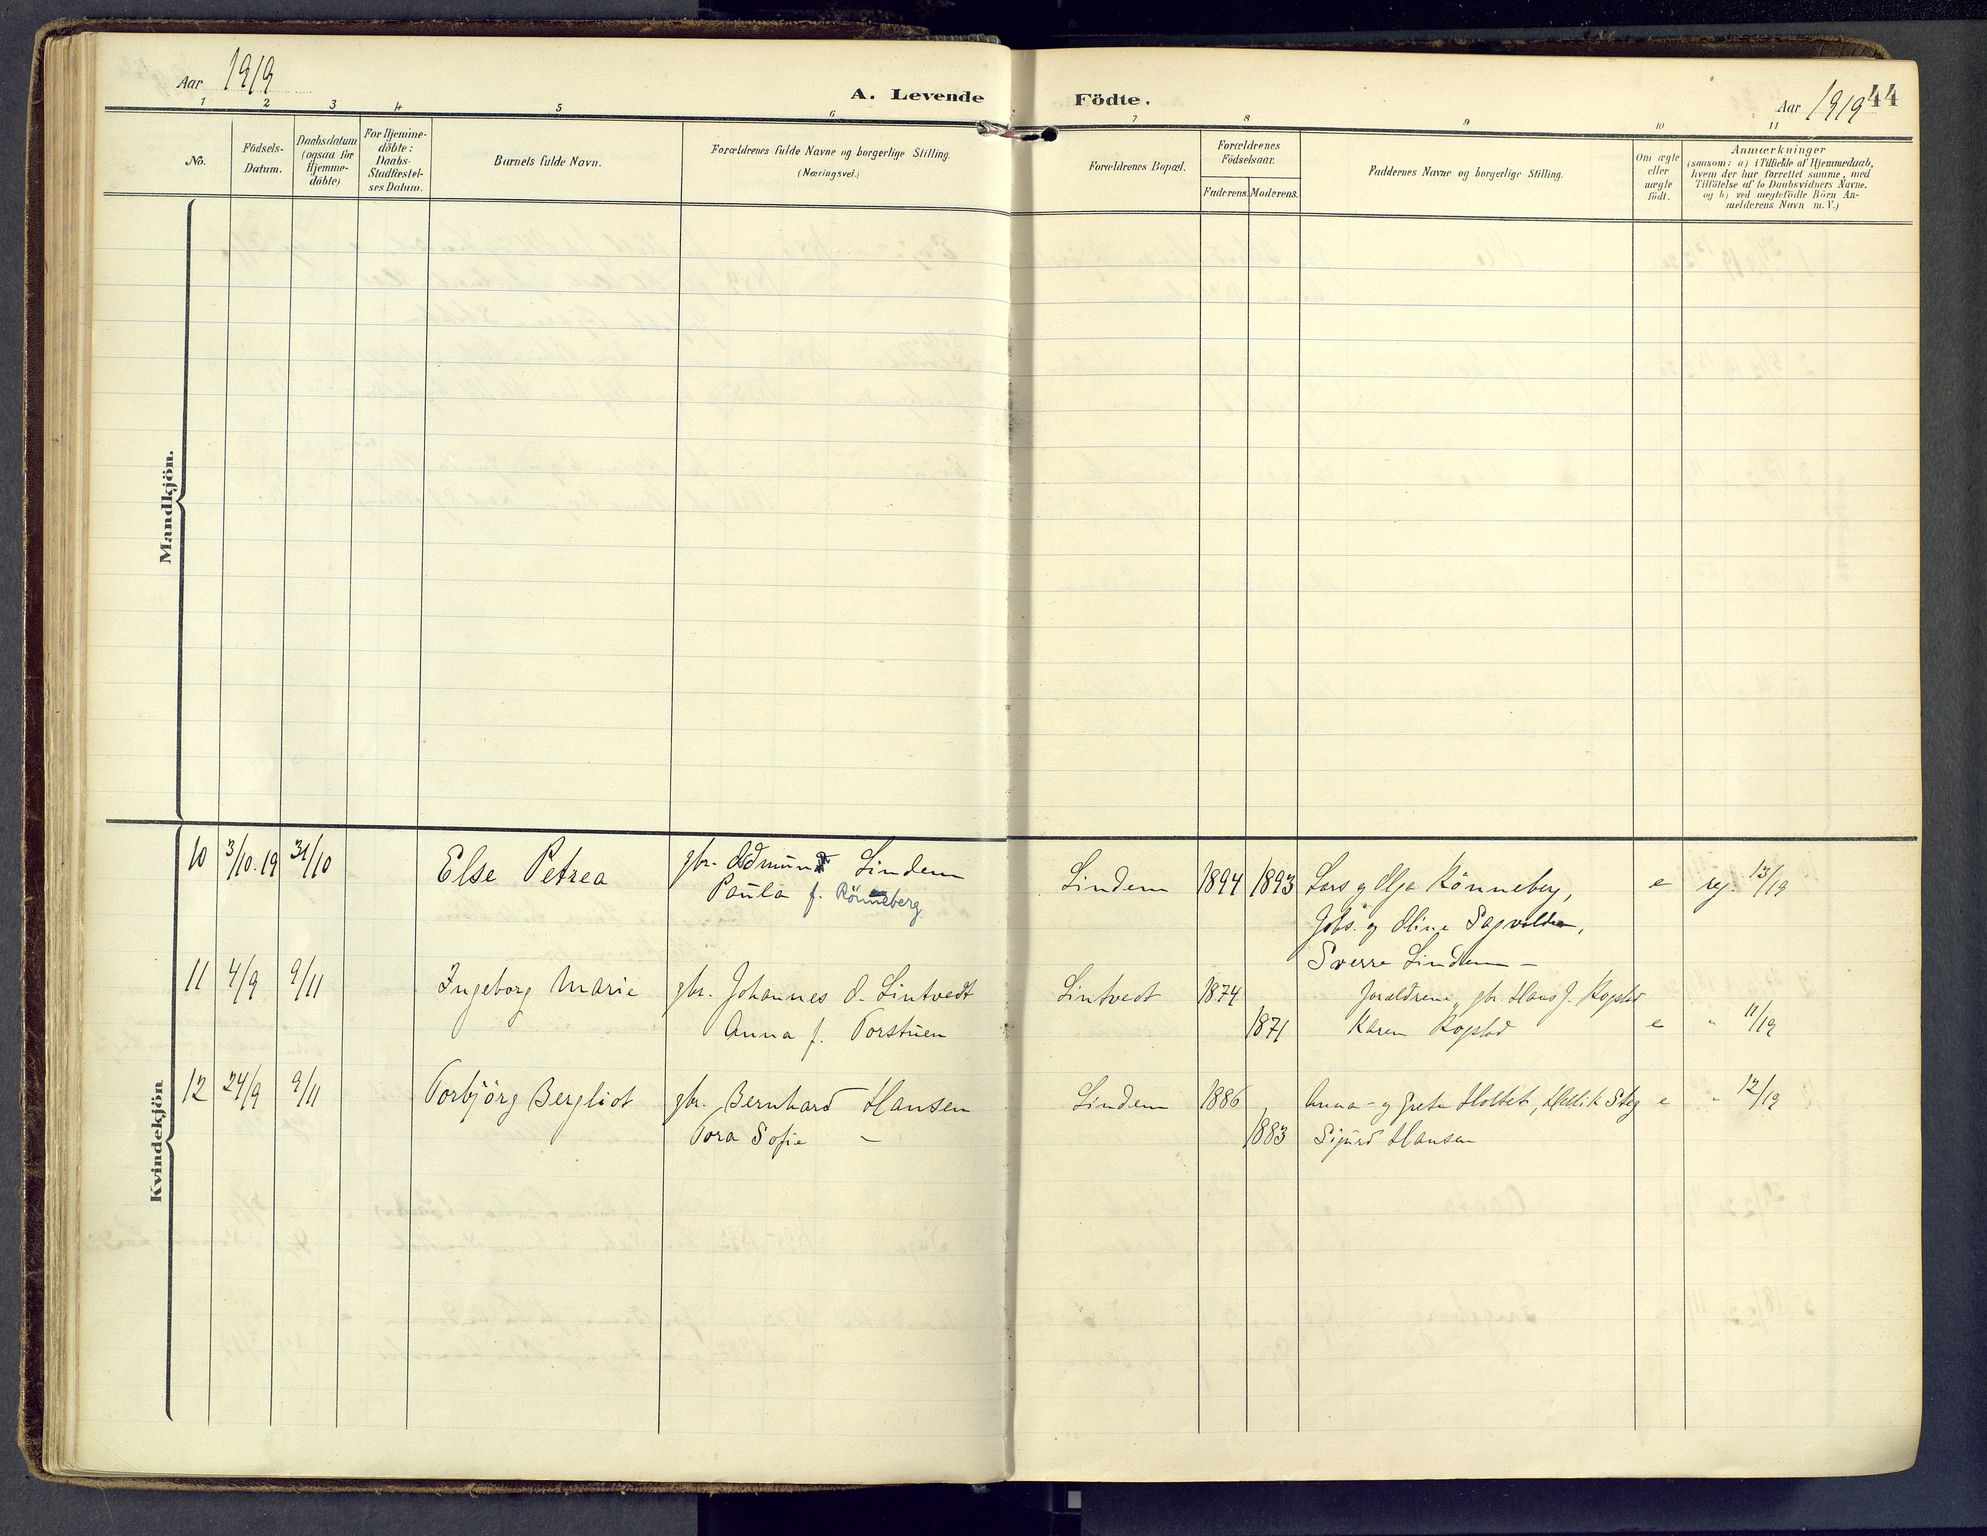 Aar 1919
A. Levende Födte.
Aar 1919 44
1 2 3 4 5 6 7 8 9 10 11
No.
Födsels-
Datum.
Daabsdatum
(ogsaa for
Hjemme-
döbte)
For Hjemme-
döbte:
Daabs-
Stadfæstel-
ses Datum.
Barnets fulde Navn.
Forældrenes fulde Navne og borgerlige Stilling.
(Næringsvei.)
Forældrenes Bopæl.
Forældrenes
Födselsaar.
Faderens. Moderens.
Faddernes Navne og borgerlige Stilling.
Om ægte
eller
uægte
födt.
Anmærkninger
(saasom: a) i Tilfælde af Hjemmedaab,
hvem der har forrettet samme, med
Tilföielse af to Daabsvidners Navne.
og b) ved uægtefödte Börn An-
melderens Navn m. V.)
Mandkjön.
Kvindekjön
10 3/10.19 31/10 Else Petrea gbr. Edmund Lindem Lindem 1894 1893 Lars og Olga Rönneberg, e reg. 13/19
Paula f. Rönneberg Johs. og Oline Sagvolden,
Sverre Lindem –
11 4/9 9/11 Ingeborg Marie gbr. Johannes O. Lintvedt Lintvedt 1874 Forældrene, gbr. Hans J. Rogstad
Anna f. Torstuen 1871 Karen Rogstad e " 11/19
12 24/9 9/11 Torbjörg Bergliot gbr. Bernhard Hansen Lindem 1886 Anna – og Grete Holtet, Steg e " 12/19
Tora Sofie – 1883 Sigurd Hansen